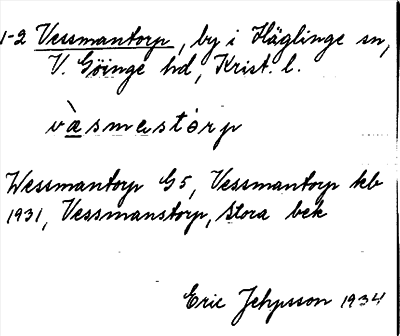 1-2 Vessmantorp, by i Häglinge sn,
V. Göinge hd, Krist. l.
vàsmestórp
Wessmantorp G5, Vessmantorp kb
1931, Vessmanstorp, stora bek
Eric Jehpsson 1934